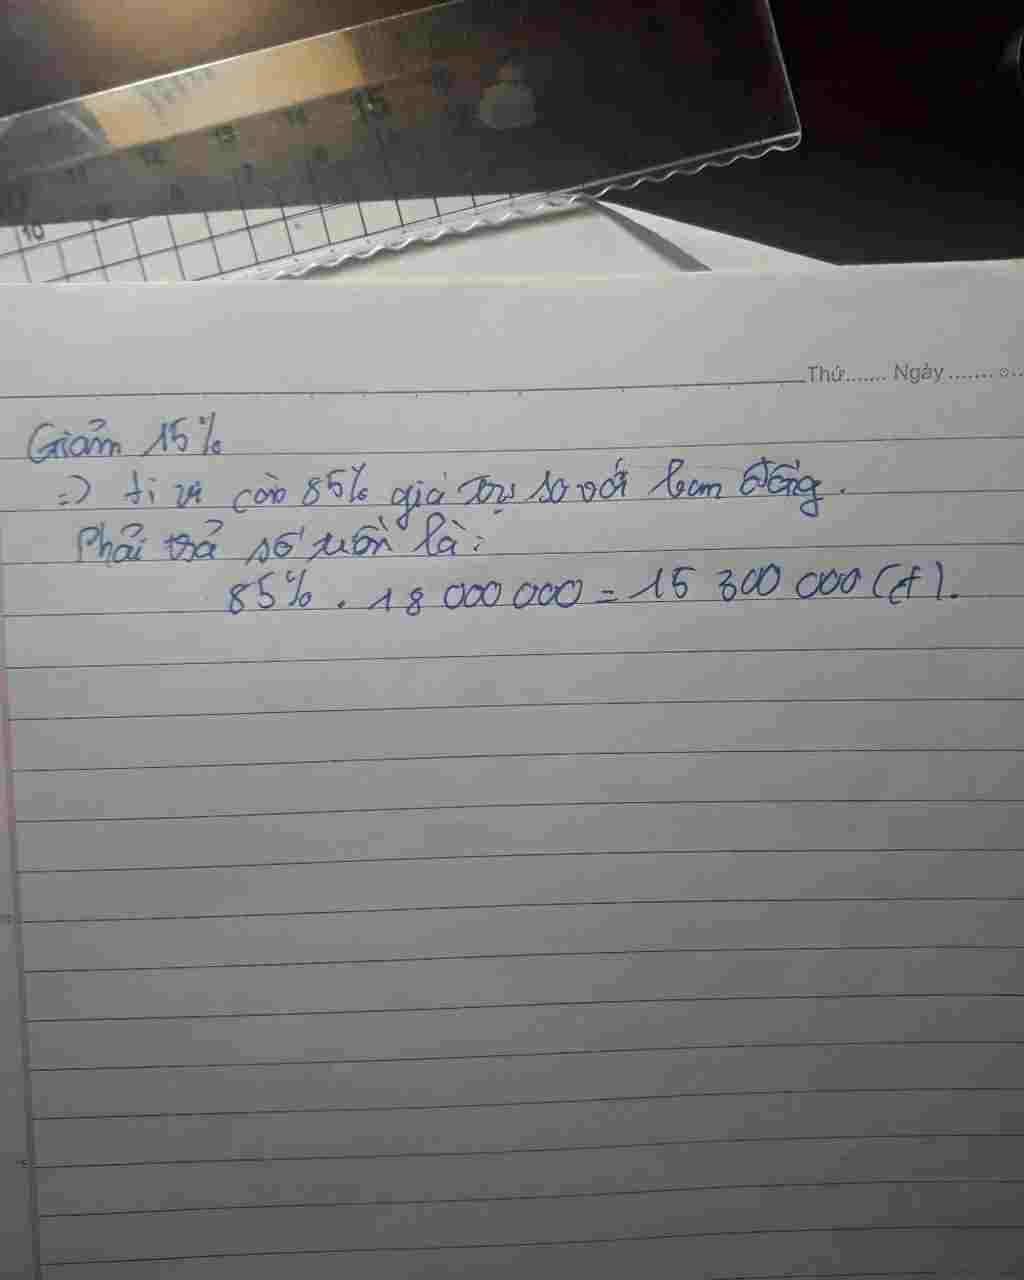 10 11 12 13 14 15
10 6 7 8
Thứ....... Ngày .......
Giảm 15%
=> ti vi còn 85% giá trị so với ban
Phải trả số tiền là:
85% . 18 000 000 = 15 300 000 (đ).